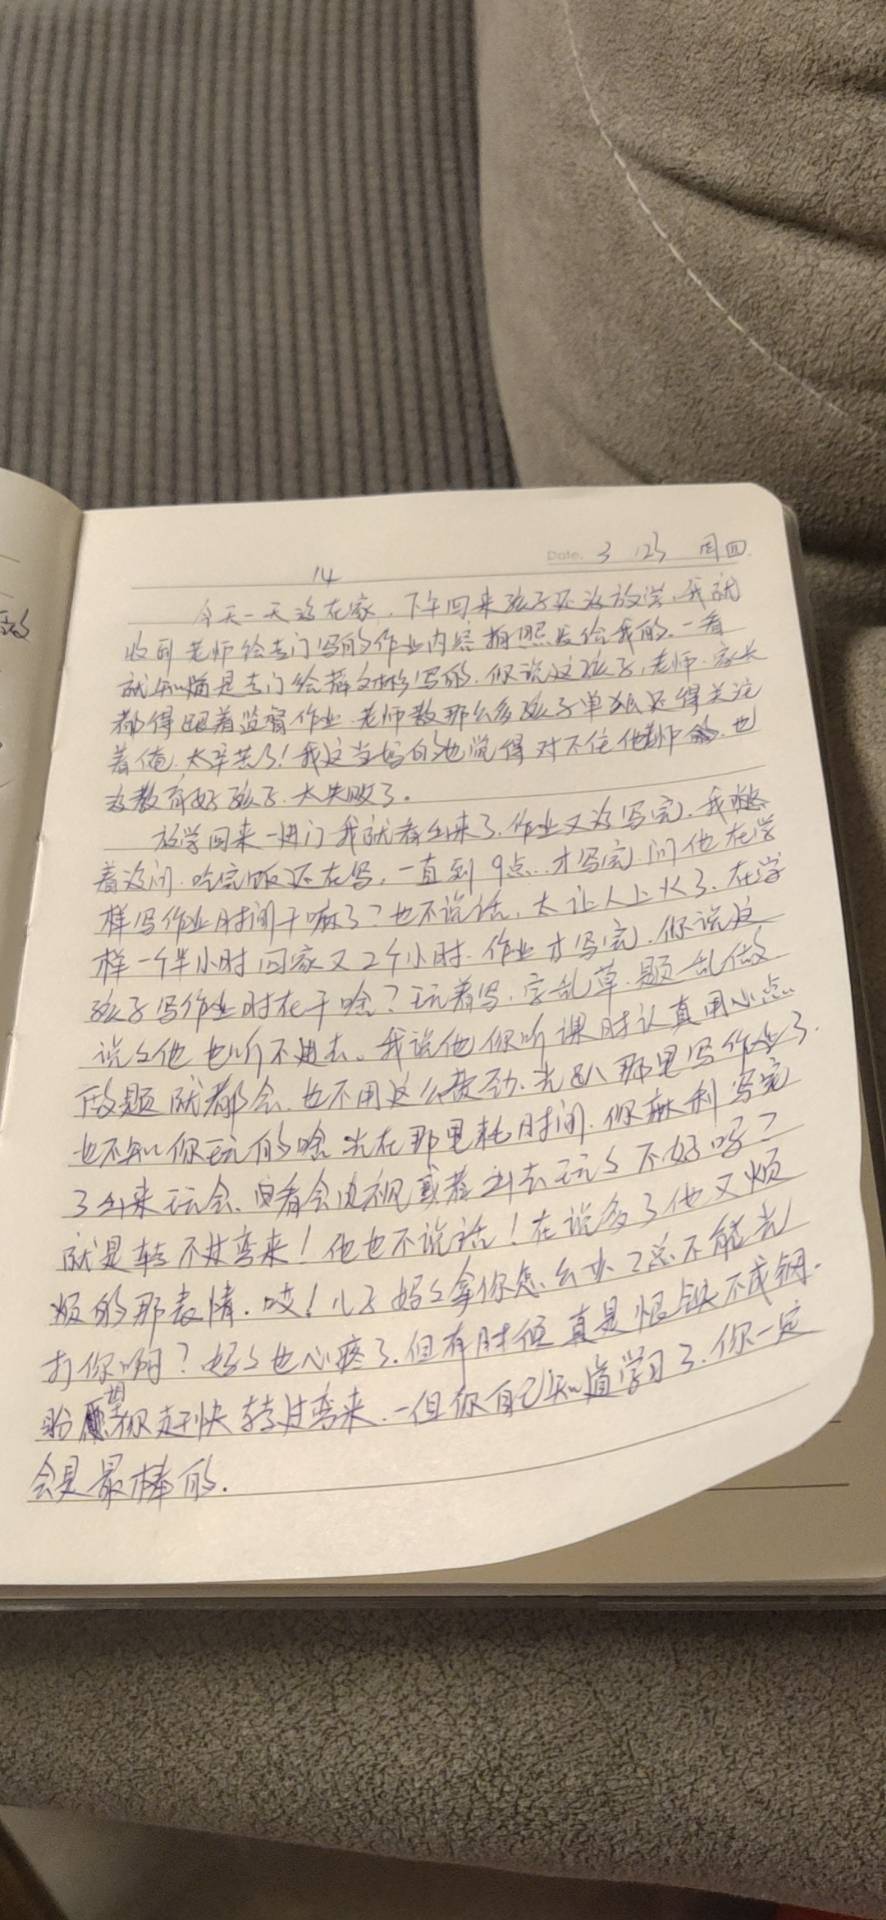 Date. 3 12 周四
14
今天一天没在家,下午回来孩子还没放学,我就
收到老师给专门写的作业内容拍照发给我的.一看
就知道是专门给薛文彬写的.你说这孩子,老师.家长
都得跟着监督作业.老师教那么多孩子单独还得关注
着他,太辛苦了!我这当妈的也觉得对不住他老师,也
没教育好孩子.太失败了.
放学回来一进门我就看出来了.作业又没写完.我憋
着没问.吃完饭还在写,一直到9点..才写完.问他在学
样写作业时间干嘛了?也不说话,太让人上火了.在学
样一个半小时回家又2个小时.作业才写完.你说这
孩子写作业时在干啥?玩着写.字乱草.题乱做
说说他也听不进去。我说他你听课时认真用心点
做题就都会.也不用这么费劲.光趴那里写作业了.
也不知你玩的啥光在那里耗时间.你麻利写完
了出来玩会.看会电视或者出去玩玩不好吗?
就是转不过弯来!他也不说话!在说多了他又烦
烦的那表情.哎!儿子妈妈拿你怎么办?总不能光
打你啊?妈妈也心疼了.但有时候真是恨铁不成钢.
盼望你赶快转过弯来.一但你自己知道学习了.你一定
会是最棒的.